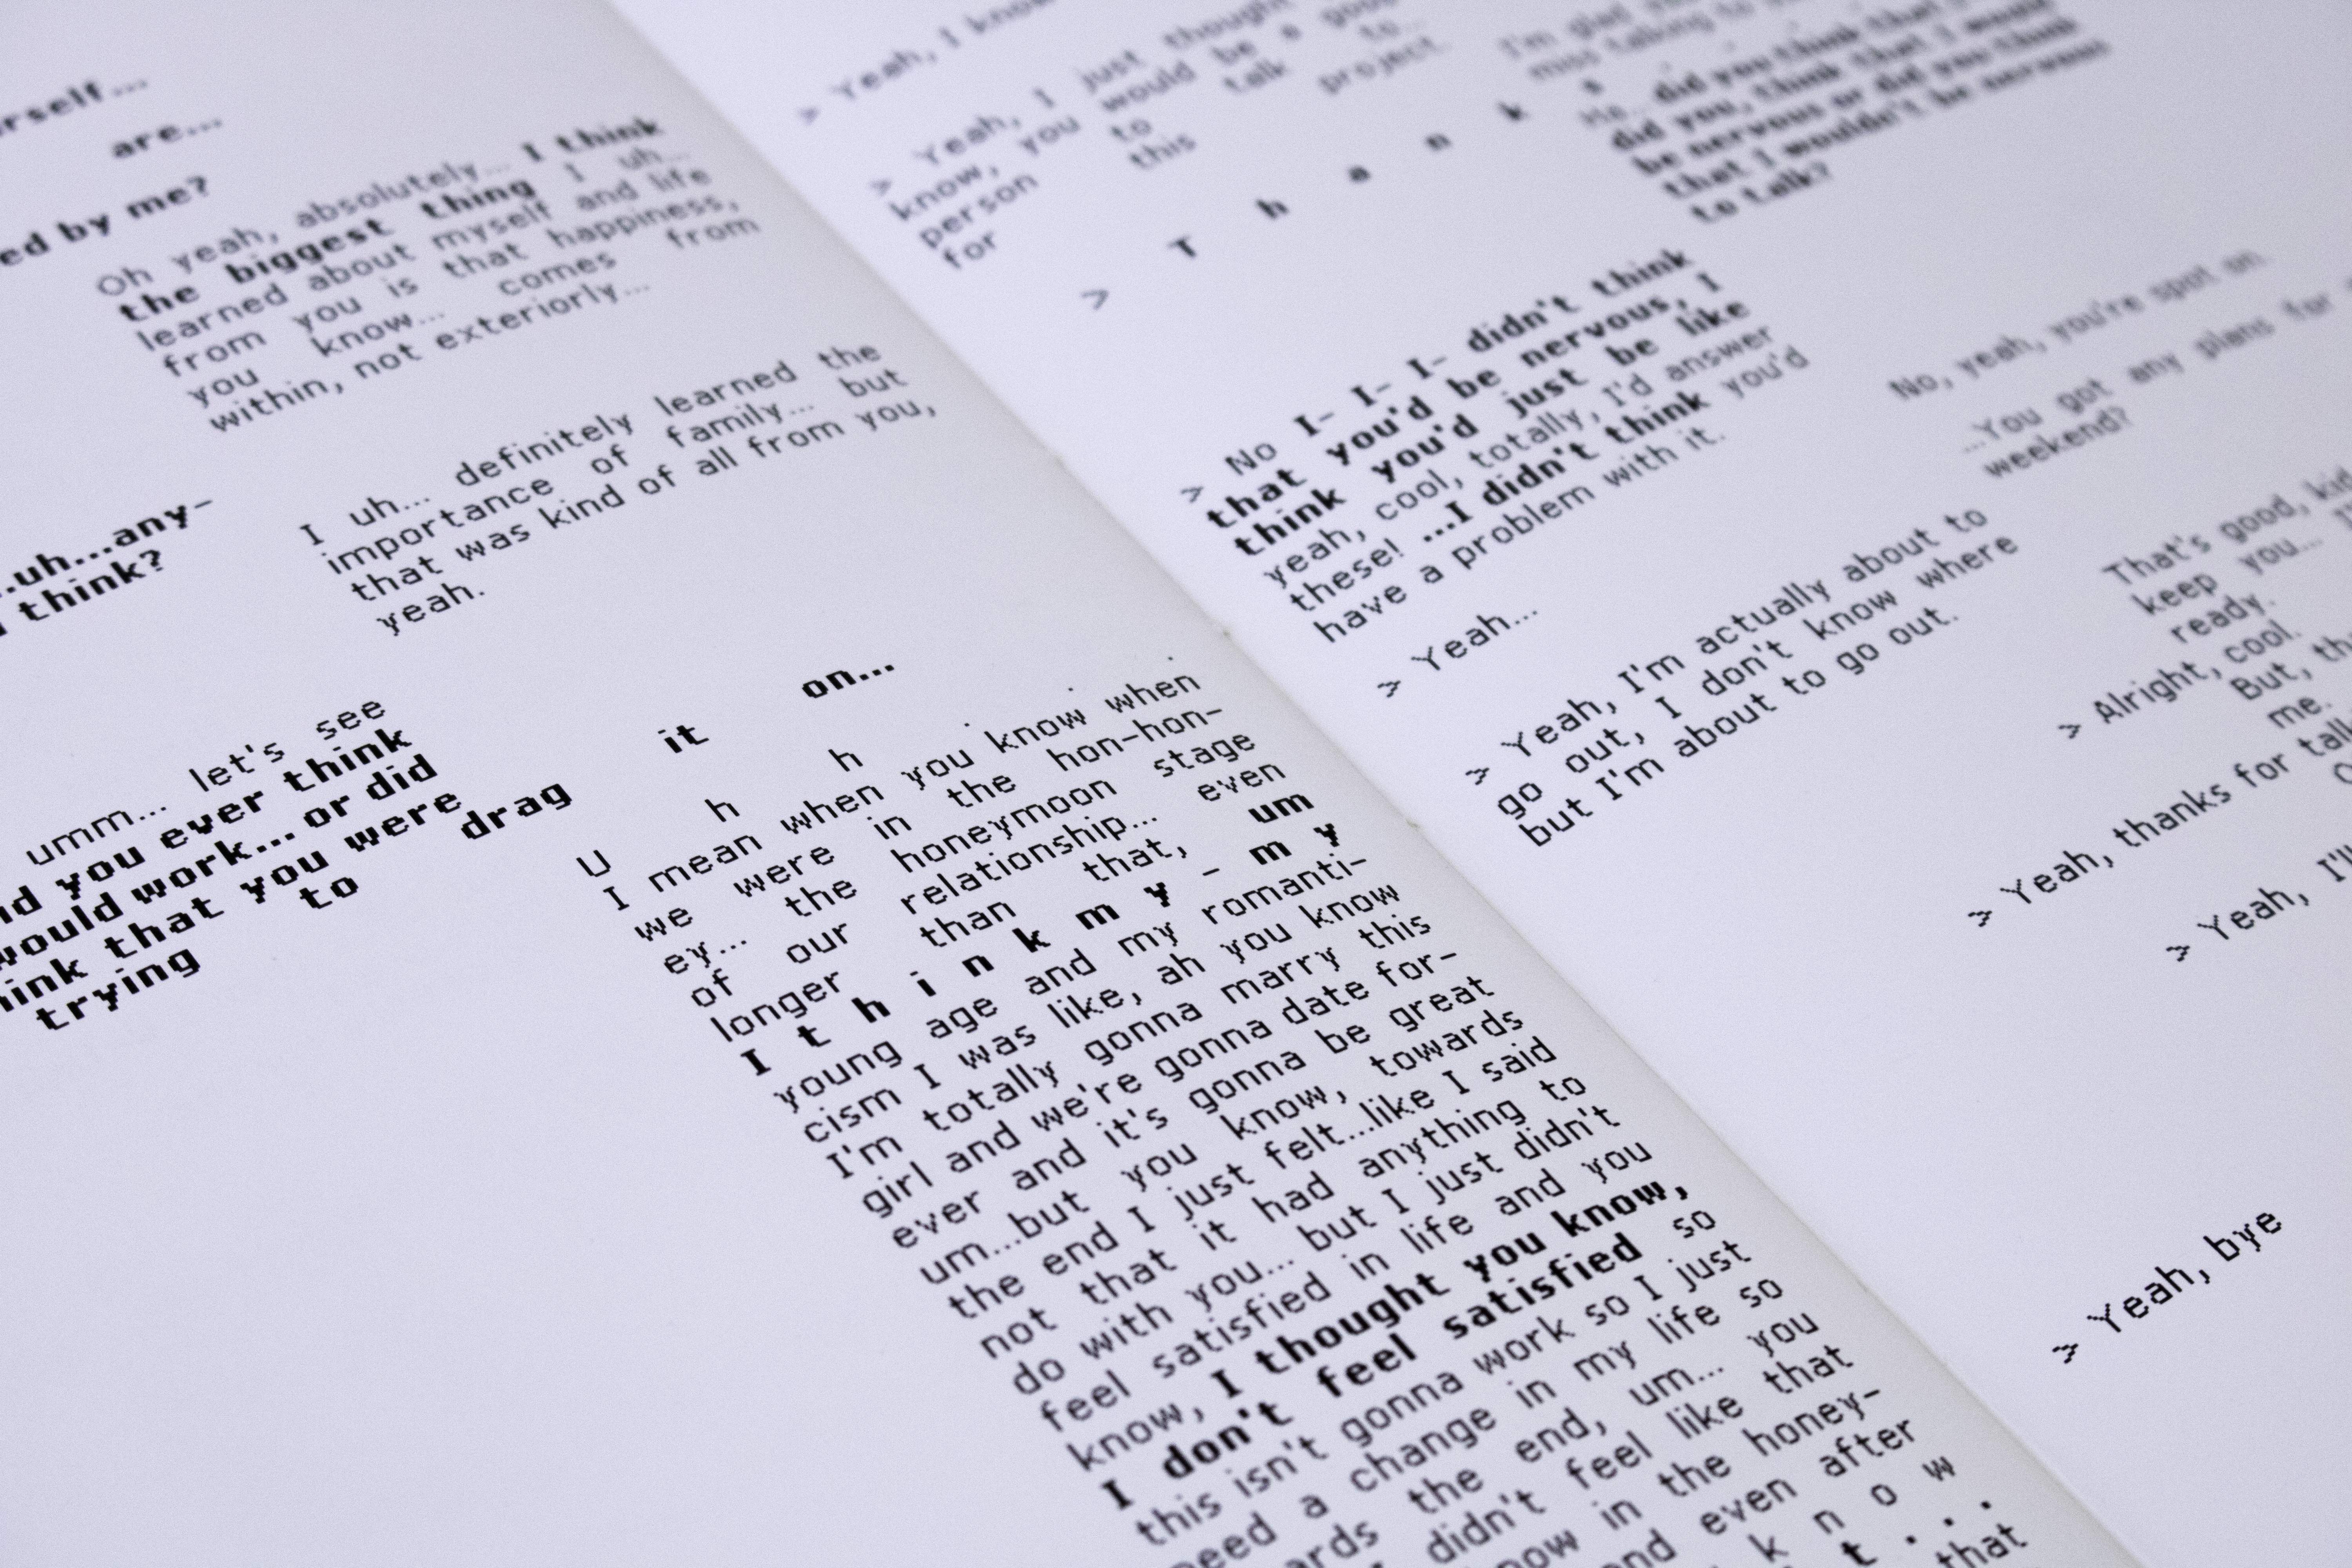 are...
ed by me?
Oh yeah, absolutely... I think
the biggest thing I uh...
learned about myself and life
from you is that happiness,
you know... comes from
within, not exteriorly...
uh...any-
think?
I uh... definitely learned the
importance of family... but
that was kind of all from you,
yeah.
umm... let's see
you ever think
would work... or did
that you were
trying to drag it on...
U h h . . .
I mean when you know when
we were in the hon-hon-
ey... the honeymoon stage
of our relationship... even
longer than that, um
I t h i n k m y - m y
young age and my romanti-
cism I was like, ah you know
I'm totally gonna marry this
girl and we're gonna date for-
ever and it's gonna be great
um...but you know, towards
the end I just felt...like I said
not that it had anything to
do with you... but I just didn't
feel satisfied in life and you
know, I thought you know,
I don't feel satisfied so
this isn't gonna work so I just
need a change in my life so
the end, um... you
didn't feel like that
in the honey-
even after
k n o w
t . . .
that
> Yeah, I know
> Yeah, I just thought
know, you would be a good
person to talk to...
for this project.
> T h a n k s
I'm glad
miss talking to
Ha.. did you think that
did you, think that I would
be nervous or did you think
that I wouldn't be nervous
to talk?
> No I- I- I- didn't think
that you'd be nervous, I
think you'd just be like
yeah, cool, totally, I'd answer
these! ...I didn't think you'd
have a problem with it.
> Yeah...
No, yeah, you're spot on.
...You got any plans for
weekend?
> Yeah, I'm actually about to
go out, I don't know where
but I'm about to go out.
That's good, kid
keep you...
ready.
> Alright, cool.
But,
me.
> Yeah, thanks for
> Yeah, I'll
> Yeah, bye